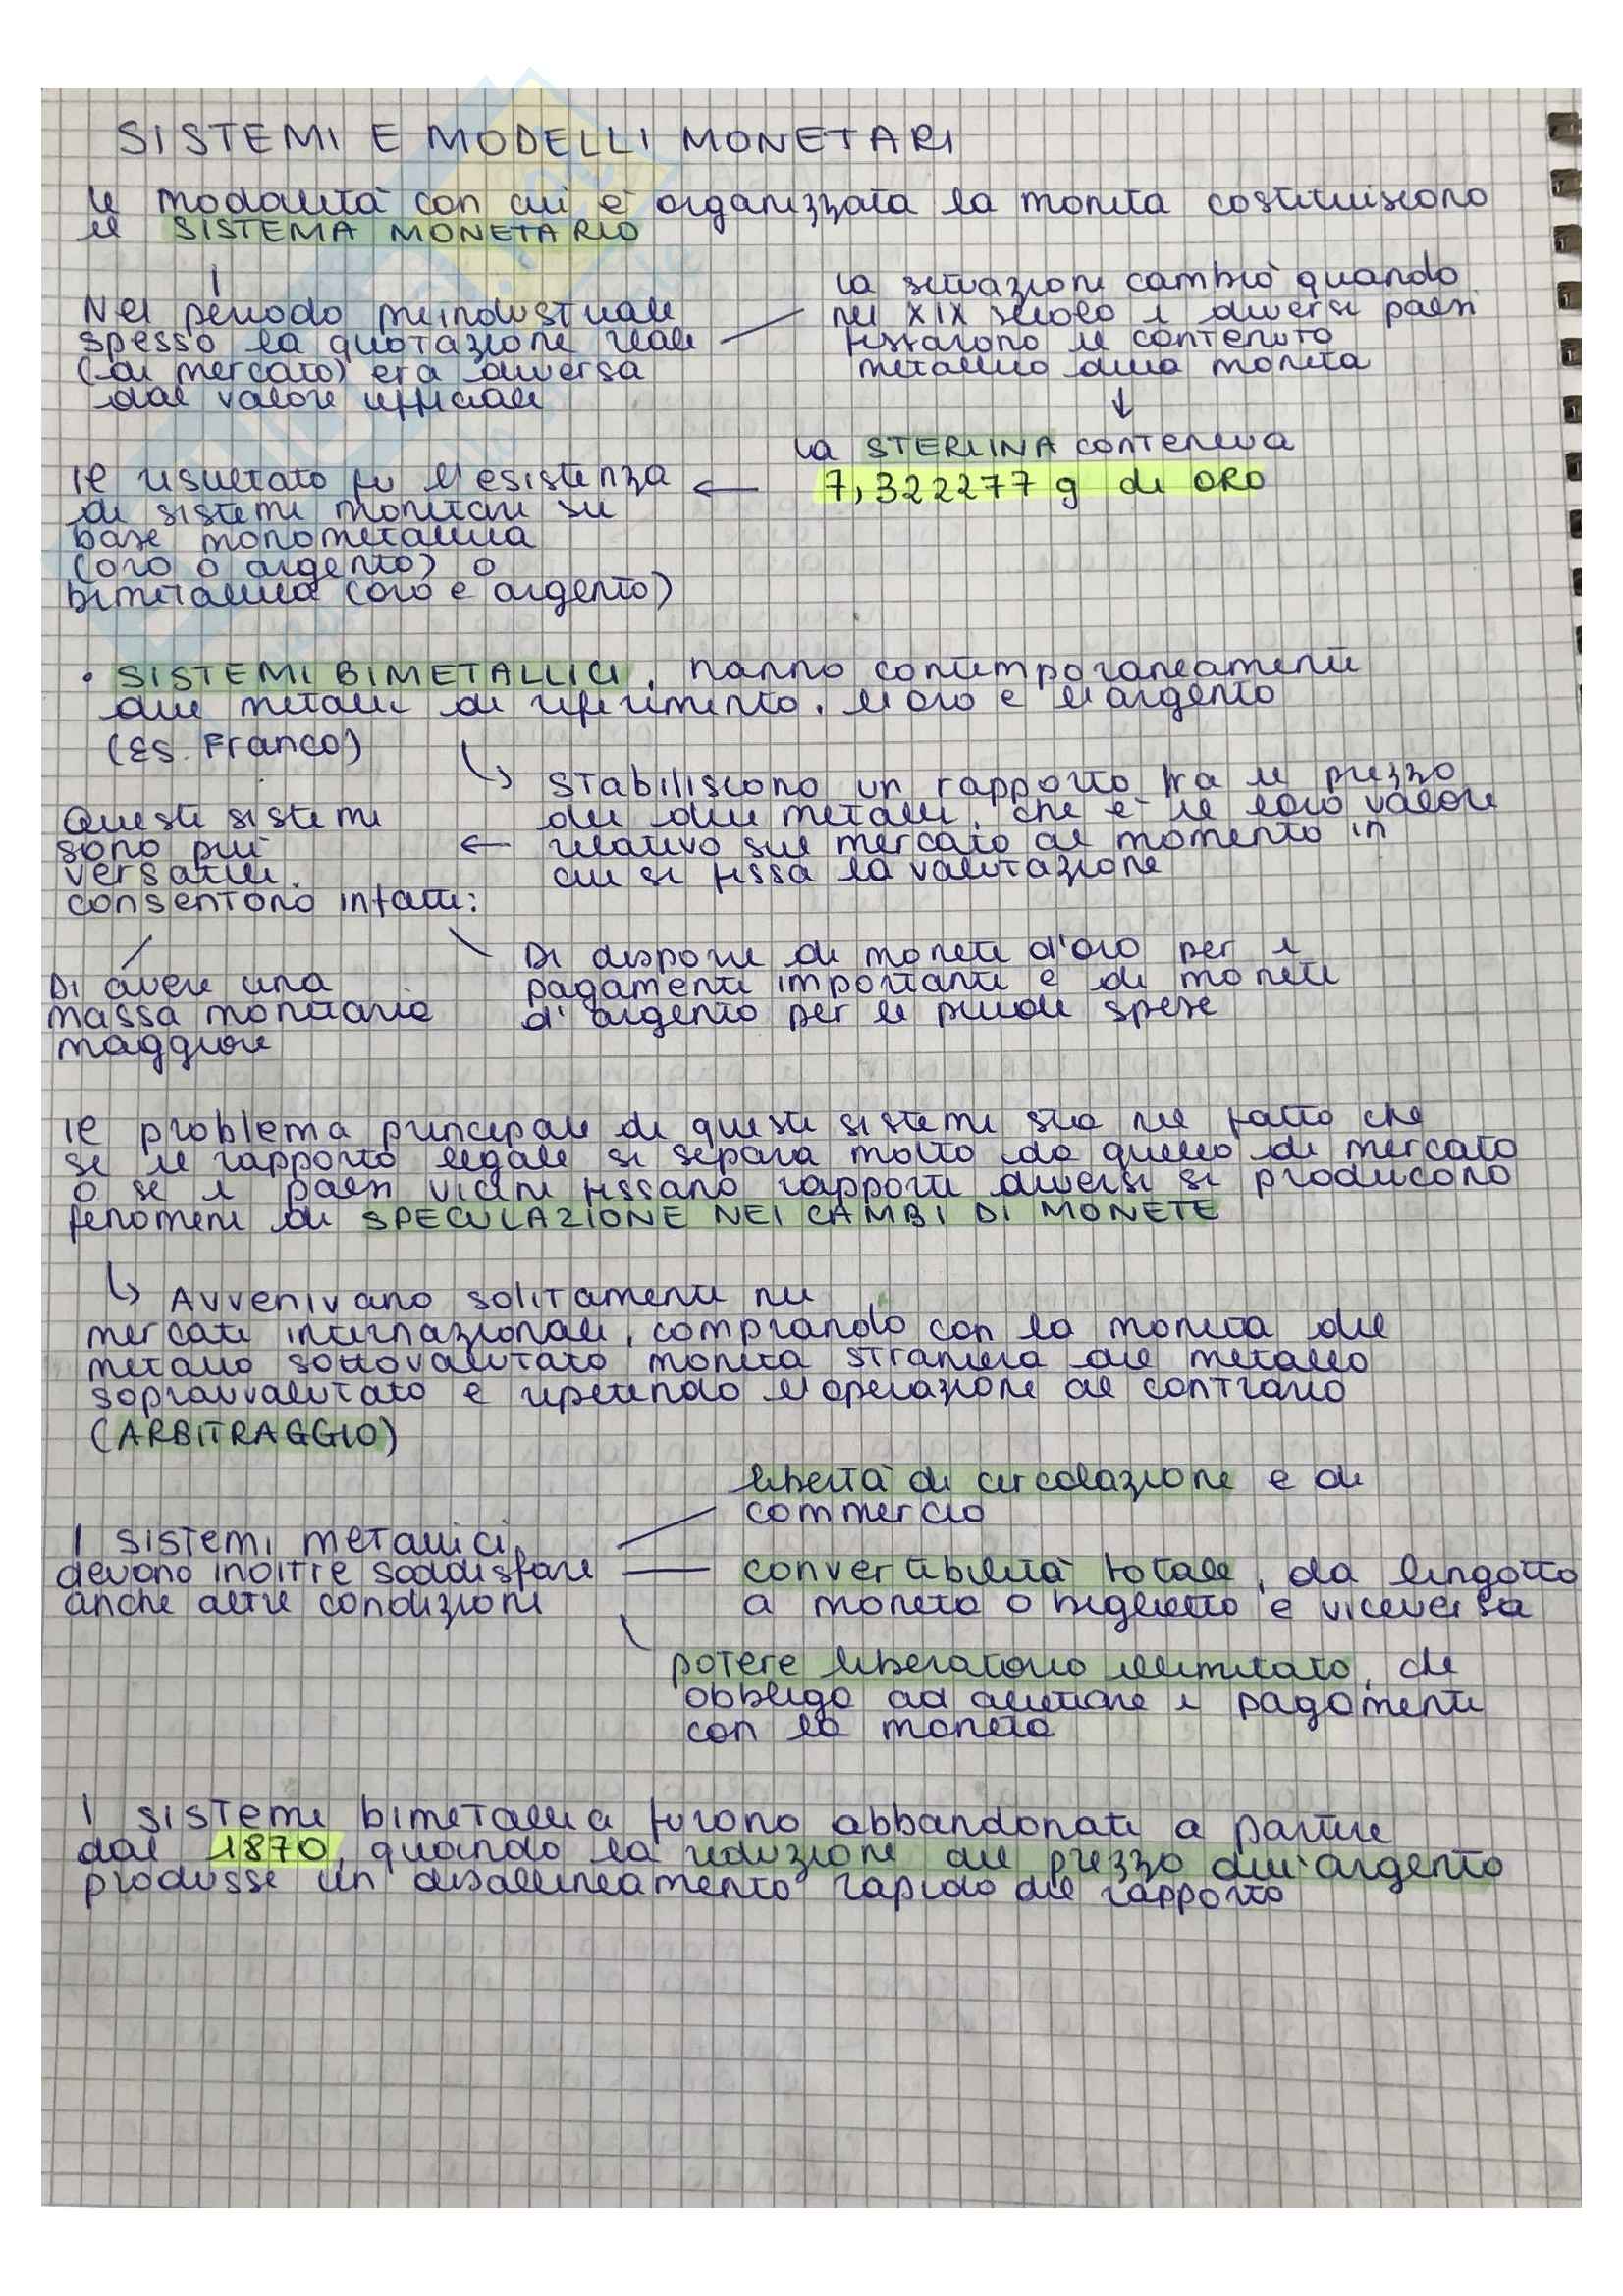 SISTEMI E MODELLI MONETARI
le modalità con cui è organizzata la moneta costituiscono
il SISTEMA MONETARIO
Nel periodo preindustriale
spesso la quotazione reale
(di mercato) era diversa
dal valore ufficiale
la situazione cambiò quando
nel XIX secolo i diversi paesi
fissarono il contenuto
metallico della moneta
↓
la STERLINA conteneva
7,322277 g di ORO
←
Il risultato fu l'esistenza
di sistemi monetari su
base monometallica
(oro o argento) o
bimetallica (oro e argento)
• SISTEMI BIMETALLICI, hanno contemporaneamente
due metalli di riferimento, l'oro e l'argento
(Es. Franco)
↳ stabiliscono un rapporto fra il prezzo
dei due metalli, che è il loro valore
relativo sul mercato al momento in
cui si fissa la valutazione
←
Questi sistemi
sono più
versatili.
consentono infatti:
Di avere una
massa monetaria
maggiore
Di disporre di monete d'oro per i
pagamenti importanti e di monete
d'argento per le piccole spese
Il problema principale di questi sistemi sta nel fatto che
se il rapporto legale si separa molto da quello di mercato
o se i paesi vicini fissano rapporti diversi si producono
fenomeni di SPECULAZIONE NEI CAMBI DI MONETE
↳ Avvenivano solitamente nei
mercati internazionali, comprando con la moneta del
metallo sottovalutato moneta straniera del metallo
sopravvalutato e ripetendo l'operazione al contrario
(ARBITRAGGIO)
I sistemi metallici
devono inoltre soddisfare
anche altre condizioni
libertà di circolazione e di
commercio
convertibilità totale, da lingotto
a moneta o biglietto e viceversa
potere liberatorio illimitato, di
obbligo ad accettare i pagamenti
con la moneta
I sistemi bimetallici furono abbandonati a partire
dal 1870, quando la riduzione del prezzo dell'argento
produsse un disallineamento rapido del rapporto